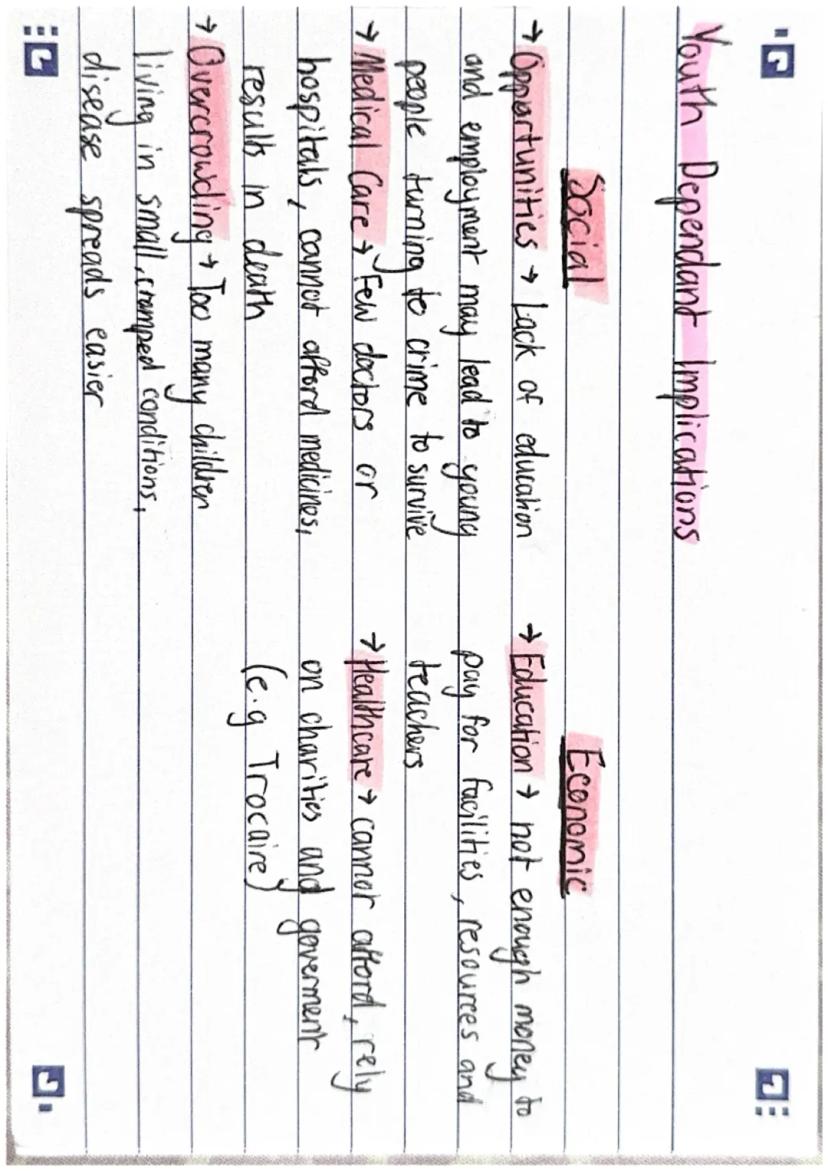 Youth Dependant Implications
Social
→ Opportunities → Lack of education
and employment may lead to young
people turning to crime to survive
→ Medical Care → Few doctors or
hospitals, cannot afford medicines,
results in death
→ Overcrowding → Too many children
living in small, cramped conditions,
disease spreads easier
Economic
→ Education → not enough money to
pay for facilities, resources and
teachers
→ Healthcare → cannot afford, rely
on charities and goverment
(e.g Trocaire)